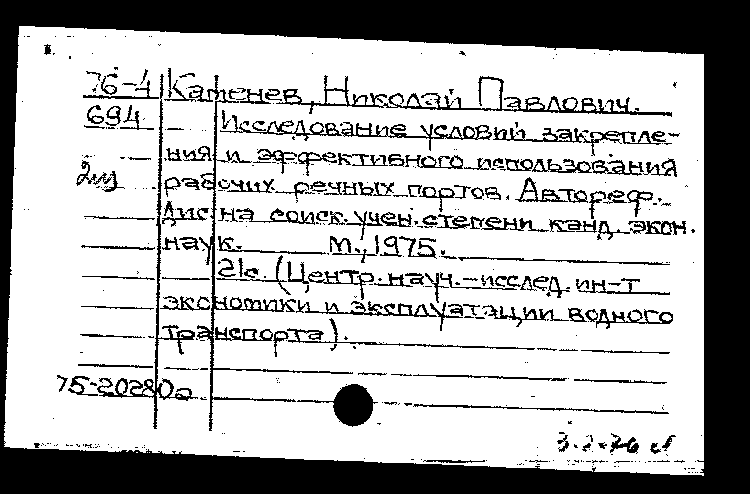 76-4 Катенев, Николай Павлович.
694 Исследование условий закрепле-
ния и эффективного использования
2 из рабочих речных портов. Автореф.
Дис. на соиск. учен. степени канд. экон.
наук. М., 1975.
21с. (Центр. науч.-исслед. ин-т
экономики и эксплуатации водного
транспорта).
75-20280а
3.2.76